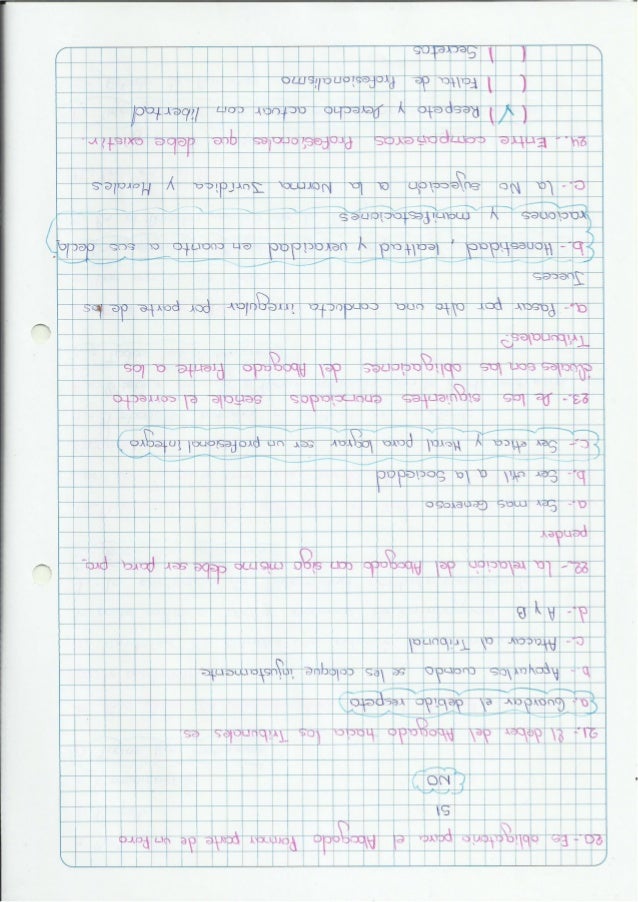 20.- Es obligatorio para el Abogado Formar parte de un Foro
SI
NO
21.- El deber del Abogado hacia los Tribunales es
a.- Guardar el debido respeto
b.- Apoyarlos cuando se les coloque injustamente
c.- Atacar al Tribunal
d.- A y B
22.- La relación del Abogado con sigo mismo debe ser para pro-
pender
a.- Ser mas Generoso
b.- Ser útil a la Sociedad
c.- Ser etica y Moral para lograr ser un profesional integro
23.- De los siguientes enunciados señale el correcto
Cuáles son las obligaciones del Abogado Frente a los
Tribunales?
a.- Pasar por alto una conducta irregular por parte de los
Jueces
b.- Honestidad, lealtad y veracidad en cuanto a sus decla
raciones y manifestaciones
c.- La No sujeción a la Norma Jurídica y Morales
24.- Entre compañeros Profesionales que debe existir.
(✓) Respeto y Derecho actuar con libertad
( ) Falta de Profesionalismo
( ) Secretos